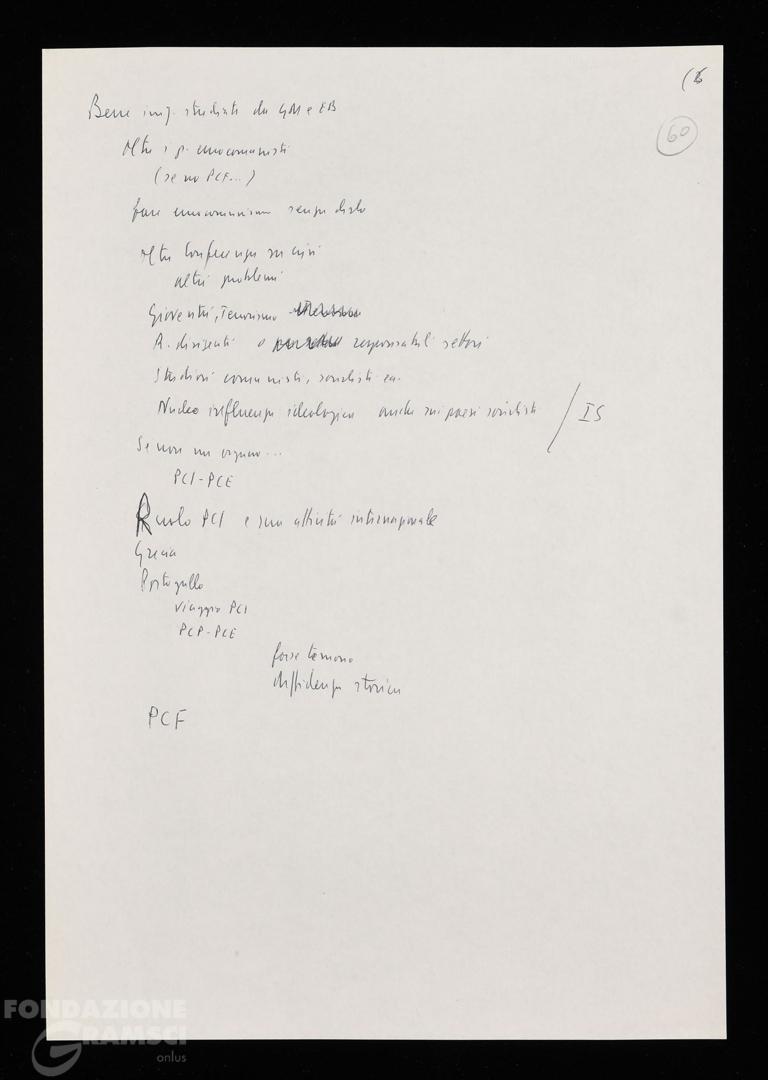 (6
60
Bene iniz. studiate da GM e EB
Altri s p. eurocomunisti
(se no PCF...)
fare eurocomunismo senza dirlo
Altre Conferenze su crisi
altri problemi
Gioventù, Terrorismo
R. dirigenti o responsabili settori
Studiosi comunisti, socialisti ecc.
Nucleo influenza ideologica anche sui paesi socialisti / IS
Se non un organo...
PCI-PCE
Ruolo PCI e sua attività internazionale
Grecia
Portogallo
Viaggio PCI
PCP-PCE
forse temono
diffidenza storica
PCF
FONDAZIONE
GRAMSCI
onlus